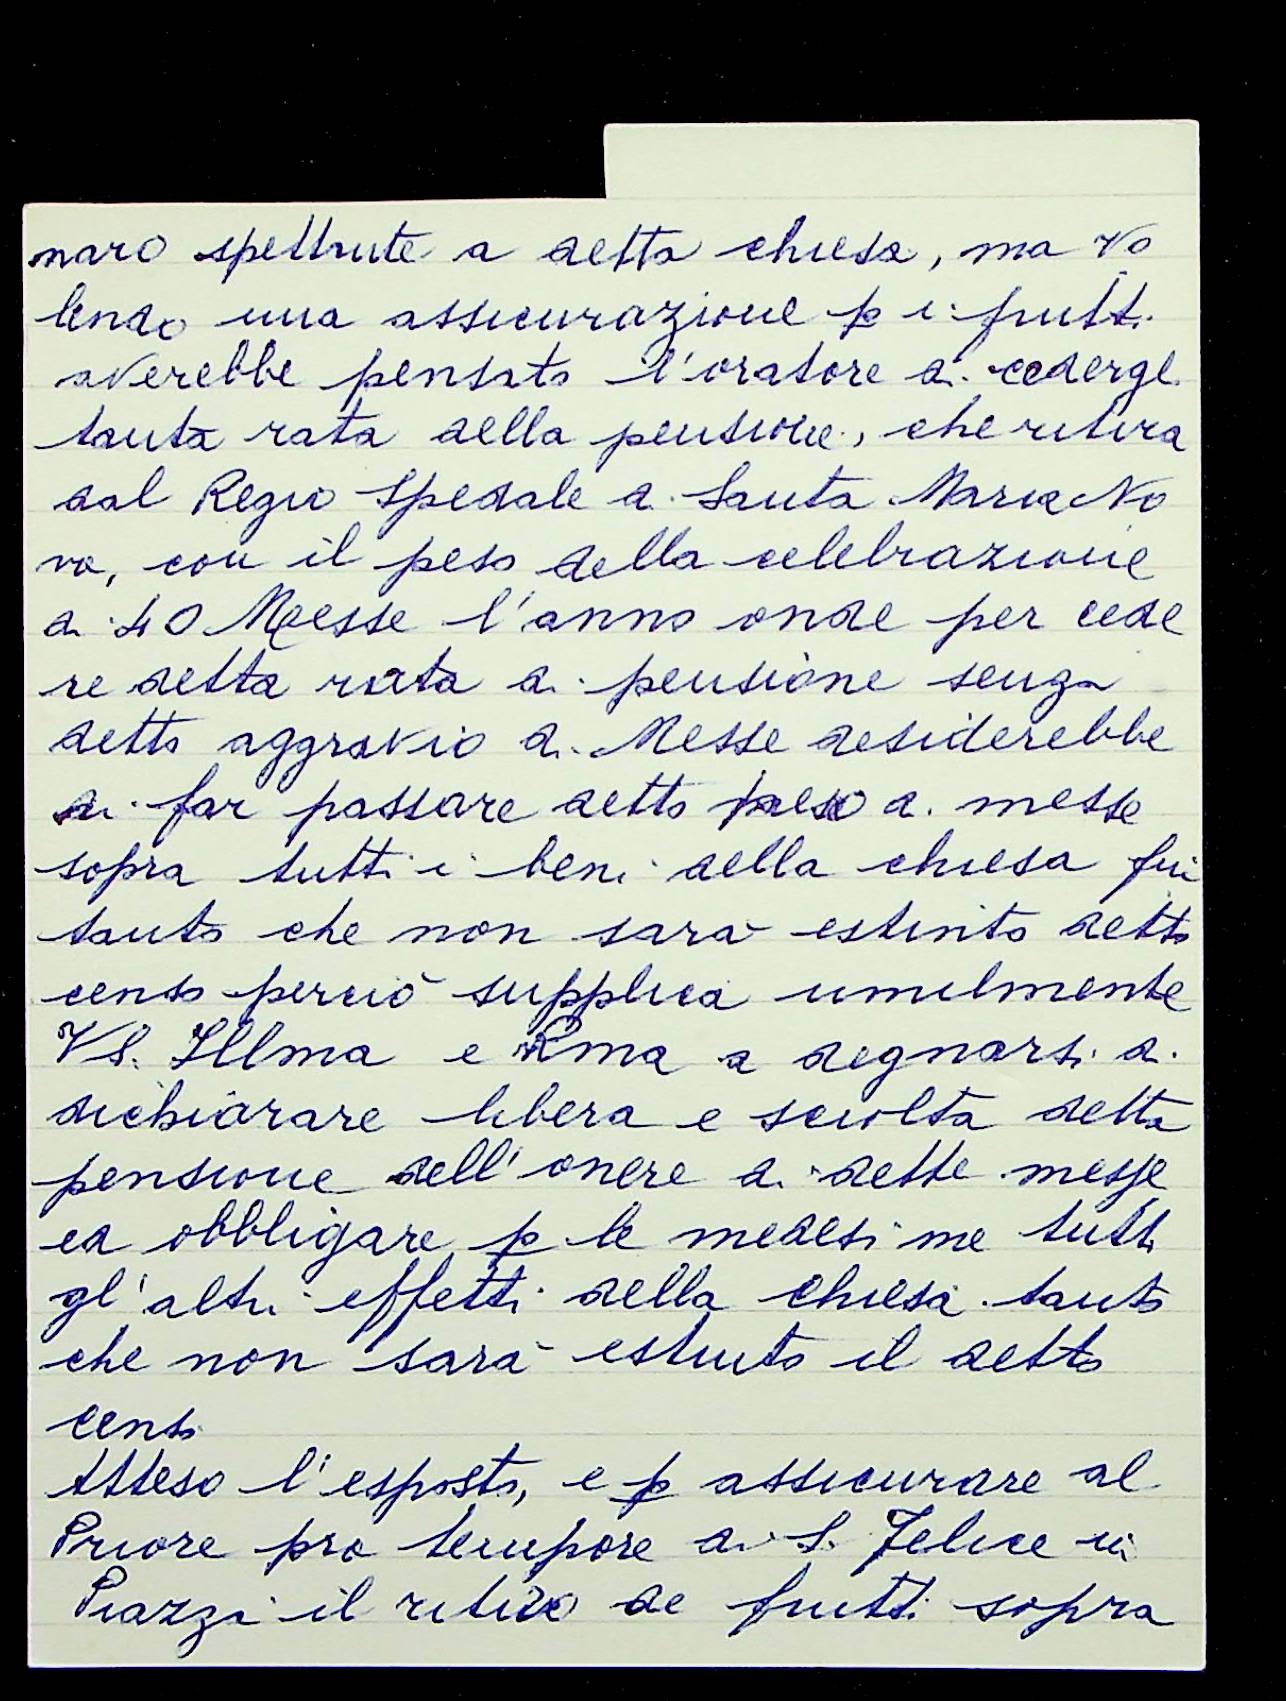 naro spettante a detta chiesa, ma vo
lendo una assicurazione p i frutti
averebbe pensato l'oratore di cedergli
tanta rata della pensione, che ritira
dal Regio Spedale di Santa Maria No
va, con il peso della celebrazione
di 40 Messe l'anno onde per cede
re detta rata di pensione senza
detto aggravio di Messe desiderebbe
di far passare detto peso di messe
sopra tutti i beni della chiesa fin
tanto che non sarà estinto detto
censo perciò supplica umilmente
VS. Illma e Rma a degnarsi di
dichiarare libera e sciolta detta
pensione dell'onere di dette messe
ed obbligare p le medesime tutti
gl'altri effetti della Chiesa tanto
che non sarà estinto il detto
censo
Atteso l'esposto, e p assicurare al
Priore pro tempore di S. Felice in
Piazza il ritiro de frutti sopra